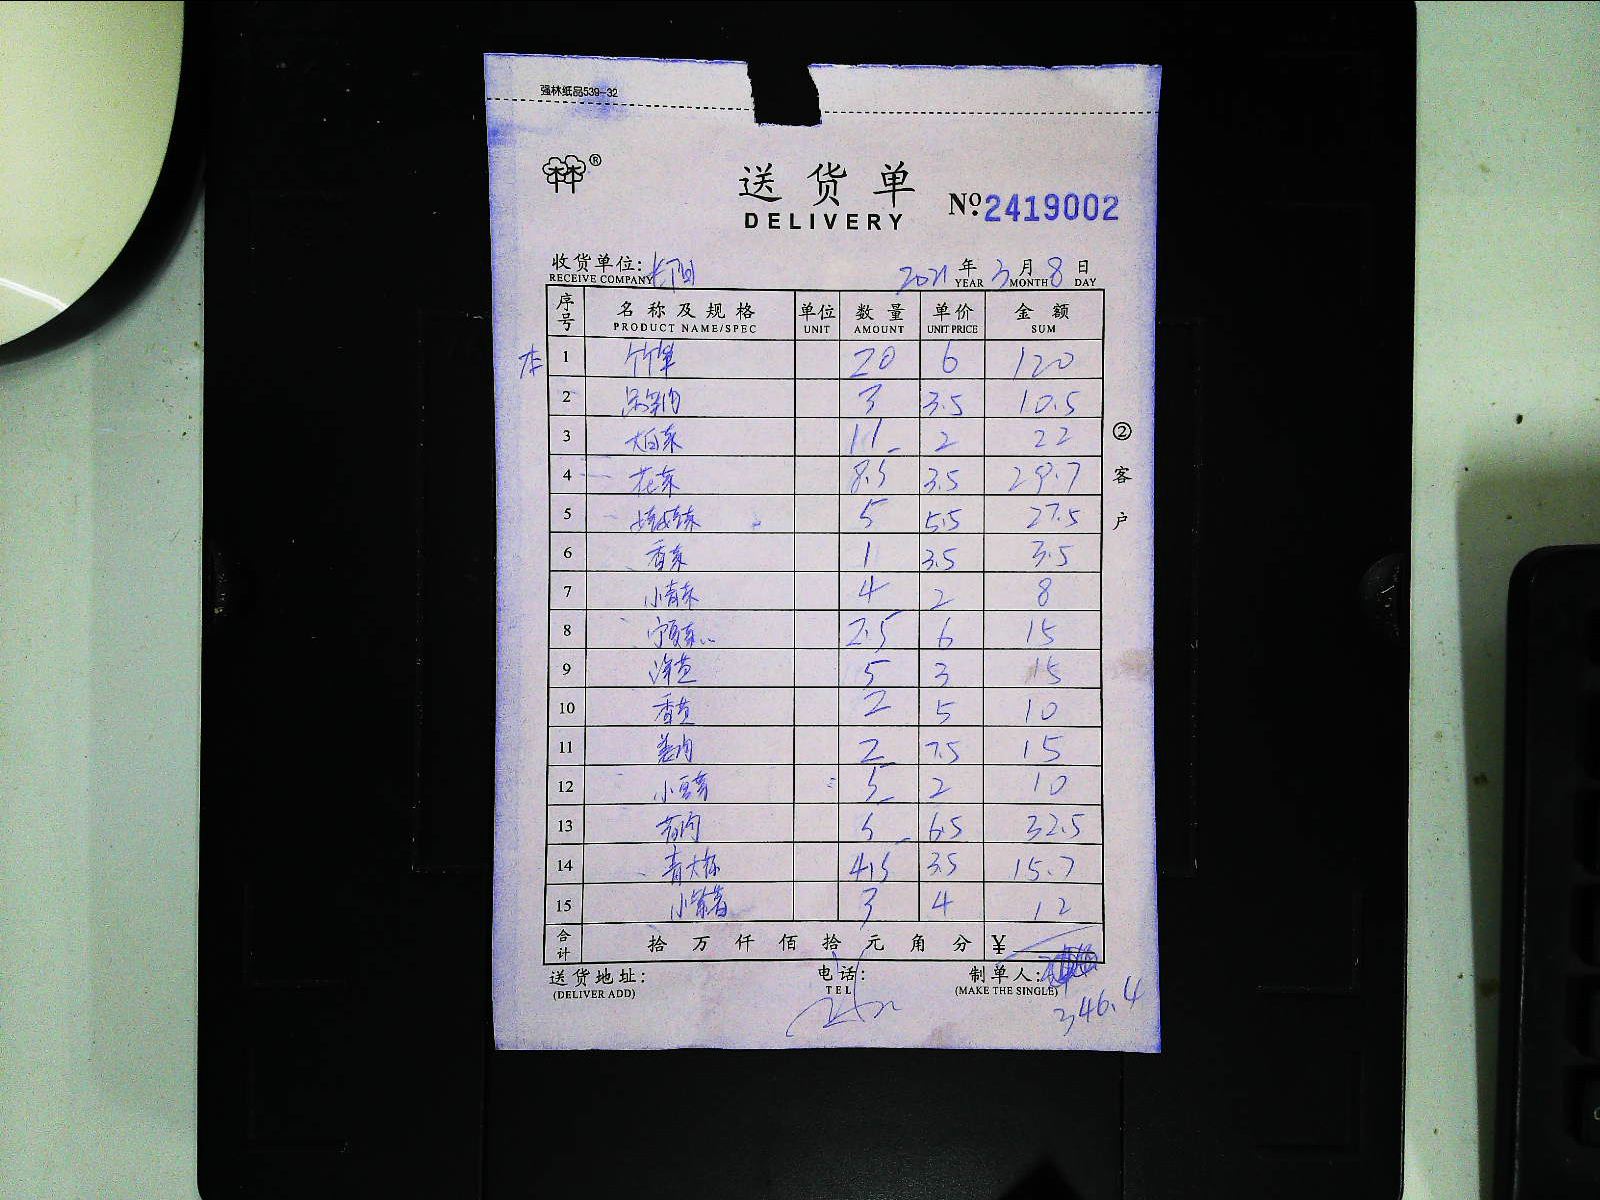 强林纸品539-32
®
送货单
DELIVERY
No. 2419002
收货单位:
RECEIVE COMPANY
2021 年 3 月 8 日
YEAR MONTH DAY
序号 名称及规格 单位 数量 单价 金额
PRODUCT NAME/SPEC UNIT AMOUNT UNIT PRICE SUM
1 20 6 120
2 3 3.5 10.5
3 大白菜 11 2 22
4 花菜 8.5 3.5 29.7
5 5 5.5 27.5
6 香菜 1 3.5 3.5
7 小青菜 4 2 8
8 2.5 6 15
9 洋芋 5 3 15
10 2 5 10
11 姜 2 7.5 15
12 小豆芽 5 2 10
13 5 6.5 32.5
14 青大椒 4.5 3.5 15.7
15 小紫薯 3 4 12
合计 拾 万 仟 佰 拾 元 角 分 ¥
送货地址: 电话: 制单人:
(DELIVER ADD) TEL (MAKE THE SINGLE)
346.4
②客户